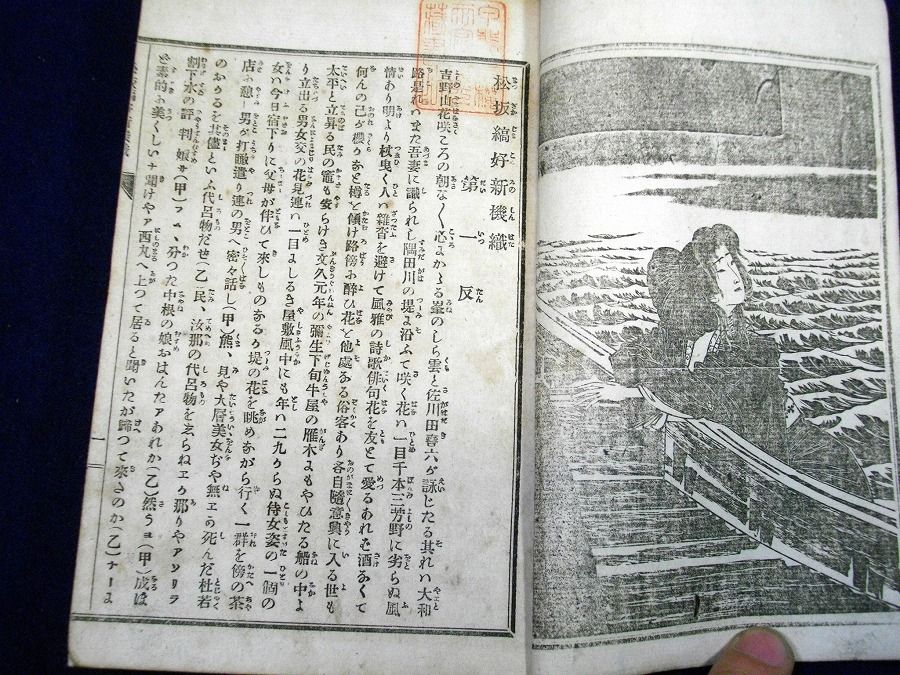 松坂縞好新機織
第一反
吉野山花咲ころの朝な〳〵心よかゝる峯のしら雲と佐川田喜六が詠じたる其れハ大和
路是れハまた吾妻に識られし隅田川の堤よ沿ふて咲く花ハ一目千本三芳野に劣らぬ風
情あり明より杖曳く人ハ雑沓を避けて風雅の詩歌俳句花を友とて愛るあれバ酒なくて
何んの己が櫻りなと樽を傾け路傍に酔ひ花を他處なる俗客あり各自隨意興に入る世も
太平と立昇る民の竈も安らけき文久元年の彌生下旬牛屋の雁木よもやひたる船の中よ
り立出る男女交の花見連ハ一目よしるき屋敷風中にも年ハ二九からぬ侍女姿の一個の
女ハ今日宿下りに父母が伴ひて來しものなるか堤の花を眺めながら行く一群を傍の茶
店に憩し男が打瞻遣り連の男へ密々話し（甲）熊、見や大層美女ぢや無エか死んだ杜若
のおりるを其儘といふ代呂物だぜ（乙）民、汝那の代呂物を知らねエか那りやアソリヤ
割下水の評判娘サ（甲）フヽ、分つた中根の娘おはんたアあれか（乙）然うヨ（甲）成ほ
ど素的に美くしいナ聞けやア西丸へ上つて居ると聞いたが歸つて來たのか（乙）ナーよ
一